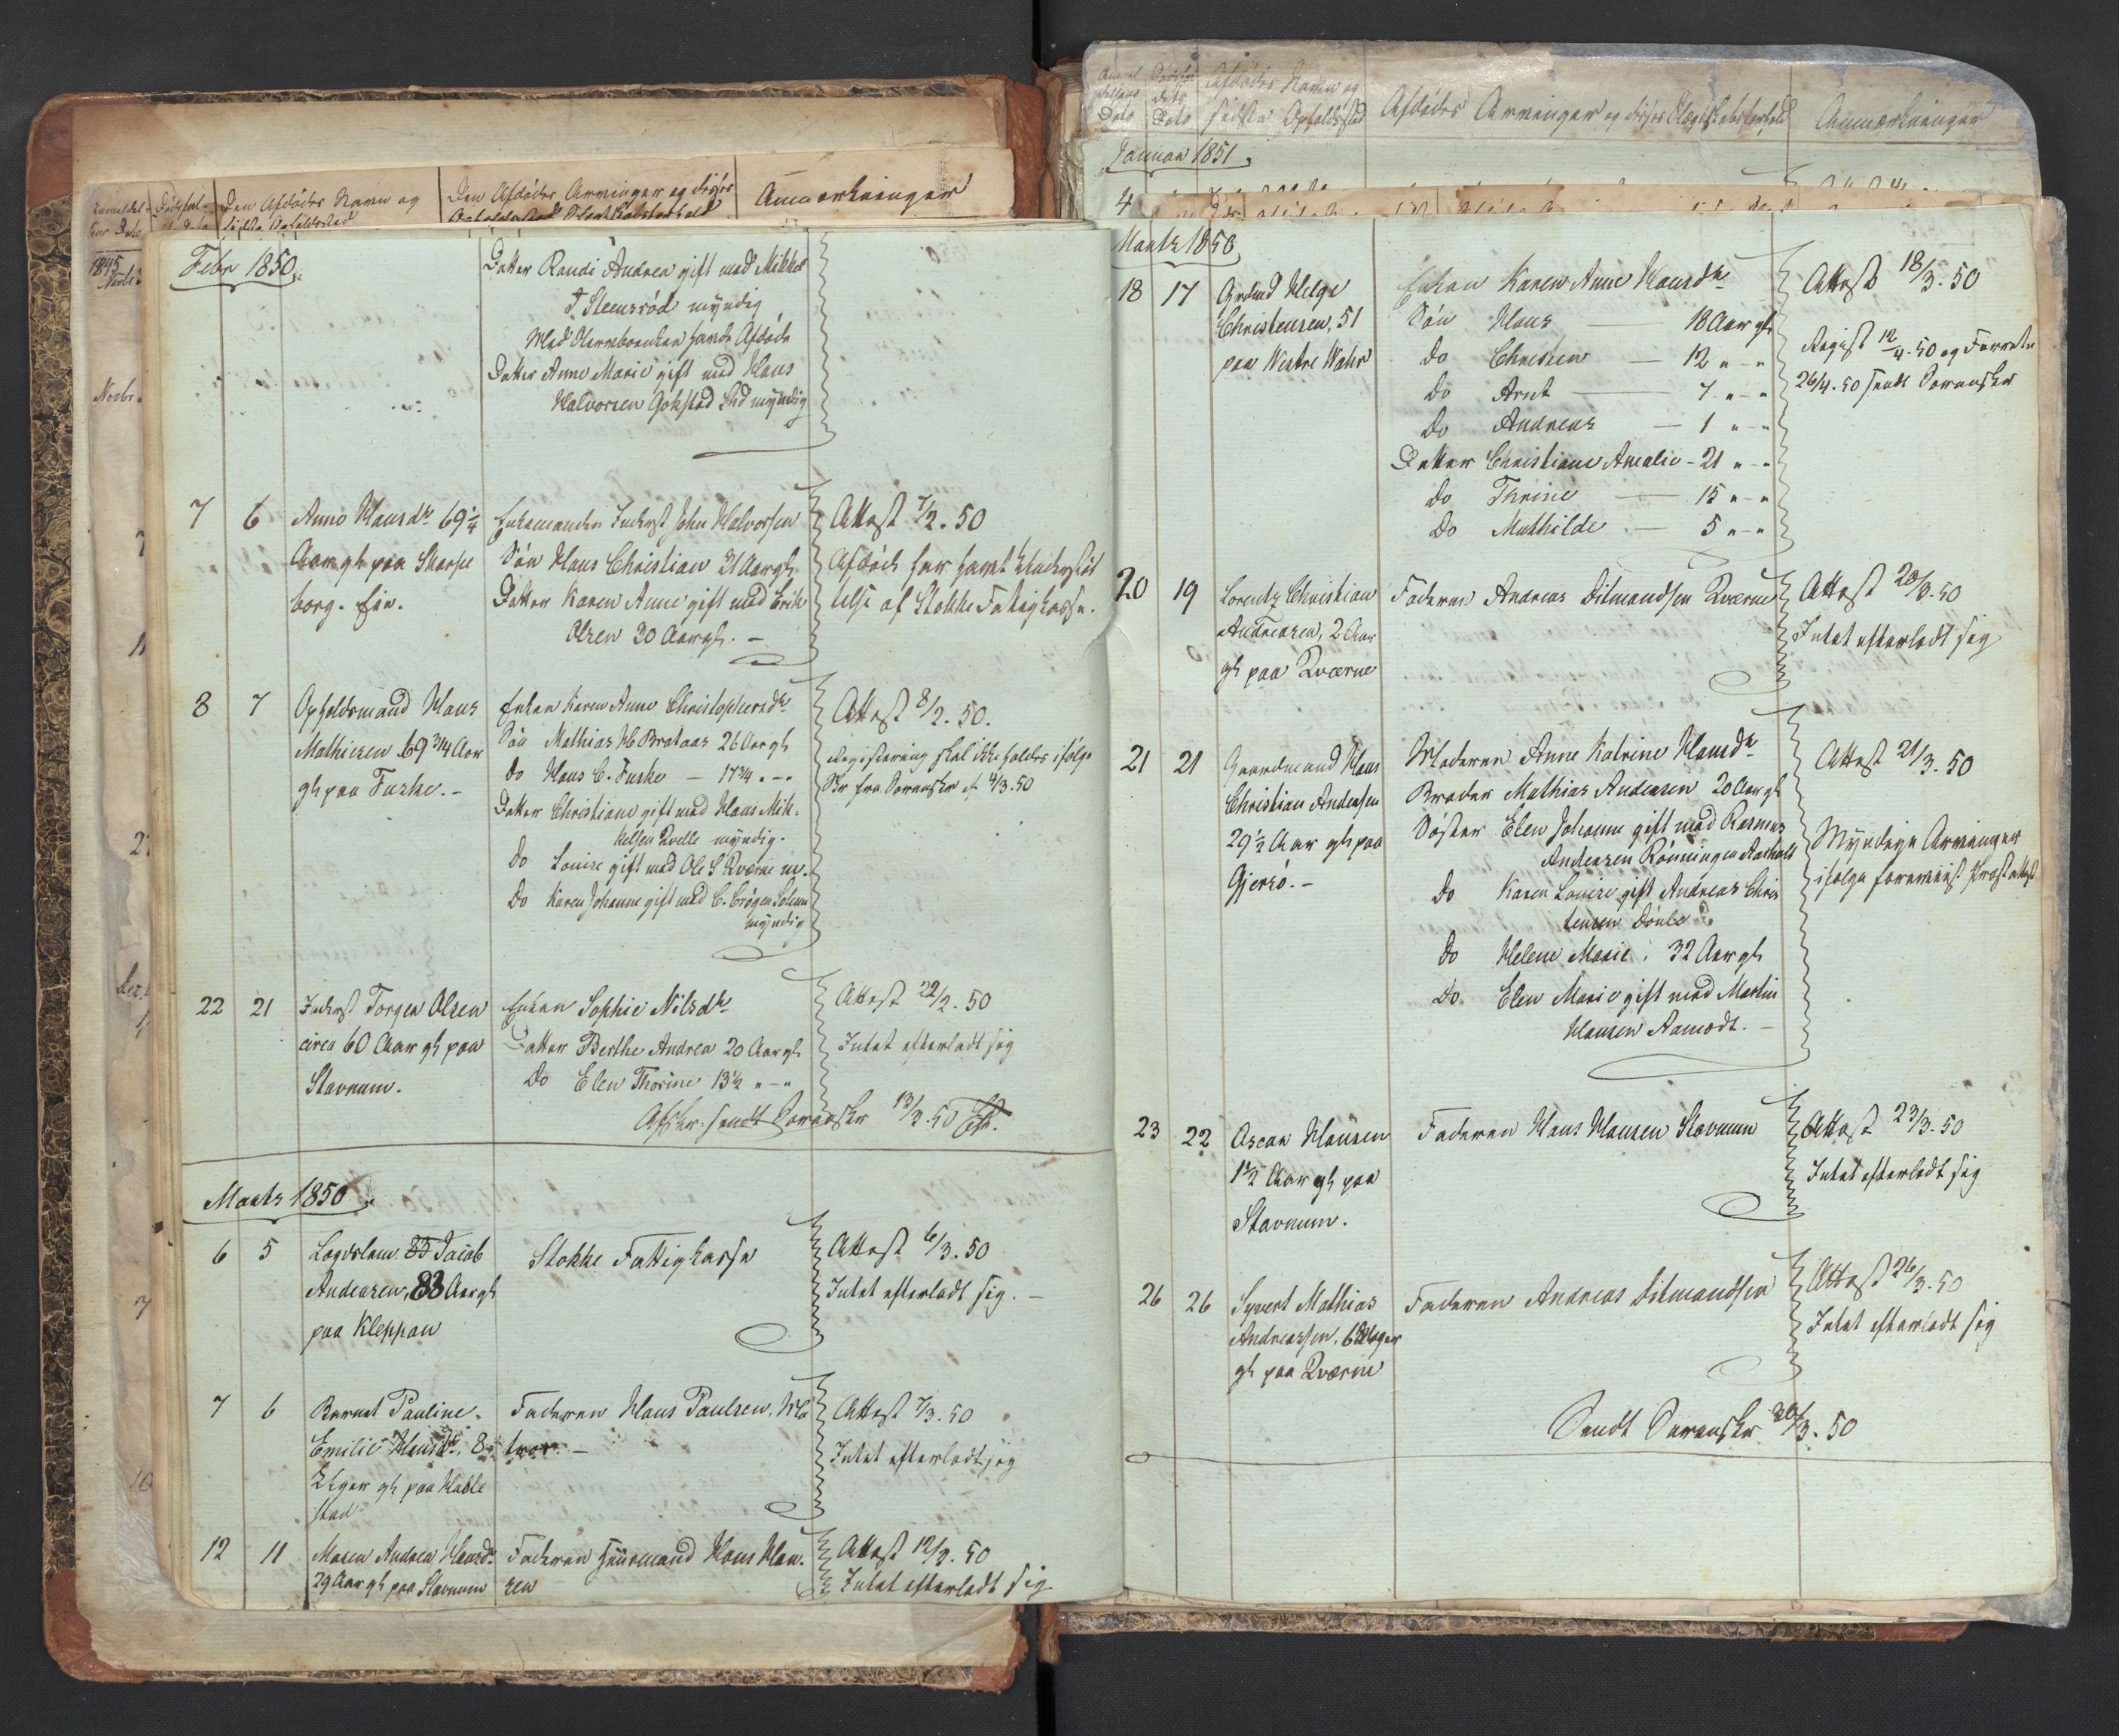 Anmeldel-
sens Dato
Dødsfal-
Den Afdødes Navn og
sidste Opholdssted
Den Afdødes Arvinger og disses
Opholdssted Slægtskabsforhold
Anmærkninger
1845
Novbr
Febr 1850
Datter Randi Andrea gift med Mikkel
T. Steensrød myndig
Med Hermboenken havde Afdøde
Datter Anne Marie gift med Hans
Halvorsen Gokstad Ejd myndig
7 6 Anne Hansdr 69 1/4
Aar gl paa Skorpe
borg. Eie.
Enkemanden Inderst John Halvorsen
Søn Hans Christian 31 Aar gl
Datter Karen Anne gift med Erik
Olsen 20 Aar gl. –
Attest 7/2. 50
Afdøde har havt Understøt
telse af Stokke Fattigkasse.
8 7 Opholdsmand Hans
Mathiesen 69 3/4 Aar
gl paa Fuske. –
Enken Karen Anne Christophersdr
Søn Mathias H Brataas 26 Aar gl
Do Hans C. Fuske – 17 3/4 " – "
Datter Christiane gift med Hans Mik-
kelsen Qvelle myndig.
Do Louise gift med Ole S Qværne m.
Do Karen Johanne gift med C. Brøgen Solum
myndig
Attest 8/2. 50.
Registrering skal ikke holdes ifølge
Skr fra Sorenskr af 4/3. 50
22 21 Inderst Torger Olsen
circa 60 Aar gl paa
Stavnum.
Enken Sophie Nilsdr
Datter Berthe Andrea 20 Aar gl
Do Elen Thorine 13 1/2 " – "
Attest 22/2. 50
Intet efterladt sig
Afskr. sendt Sorenskr 13/3. 50
Marts 1850
6 5 Lægdslem. 85 Jacob
Andersen, 83 Aar gl
paa Kleppan
Stokke Fattigkasse
Attest 6/3. 50
Intet efterladt sig. –
7 6 Barnet Pauline
Emilie Hansdr. 8
Uger gl paa Hable
stad
Faderen Hans Paulsen, Ma
tros. –
Attest 7/3. 50
Intet efterladt sig
12 11 Maren Andrea Hansdr
29 Aar gl paa Stavnum
Faderen Huusmand Hans Han-
sen
Attest 12/3. 50
Intet efterladt sig
Afdødes Navn og
sidste Opholdssted
Afdødes Arvinger og disses Slægtskabsforhold
Anmærkninger
Januar 1851
4
Marts 1850
18 17 Grdmd Helge
Christensen, 51
paa Westre Wahr
Enken Karen Anne Hansdr
Søn Hans – 18 Aar gl
Do Christen – 12 " – "
Do Arnt – 7 " – "
Do Andreas – 1 " – "
Datter Christiane Amalie – 21 " – "
Do Thrine – 15 " – "
Do Mathilde – 5 " – "
Attest 18/3. 50
Regist 12/4. 50 og Forretn
26/4. 50 sendt Sorenskr
20 19 Lorentz Christian
Andreasen, 2 Aar
gl paa Qværne
Faderen Andreas Ditmandsen Qværne
Attest 20/3. 50
Intet efterladt sig
21 21 Gaardmand Hans
Christian Andersen
29 1/2 Aar gl paa
Gjersø. –
Moderen Anne Katrine Hansdr
Broder Mathias Andersen 20 Aar gl
Søster Elen Johanne gift med Rasmus
Andersen Rønningen Aasholt
Do Karen Louise gift Andreas Chris
tensen Dønbo
Do Helene Marie 32 Aar gl
Do. Elen Marie gift med Martin
Hansen Aamodt. –
Attest 21/3. 50
Myndige Arvinger
ifølge foreviist Præsteattest
23 22 Oscar Hansen
1 1/2 Aar gl paa
Stavnum.
Faderen Hans Hansen Stavnum
Attest 23/3. 50
Intet efterladt sig
26 26 Syvert Mathias
Andreassen, 6 Uger
gl paa Qværne
Faderen Andreas Ditmandsen
Attest 26/3. 50
Intet efterladt sig
Sendt Sorenskr 30/3. 50